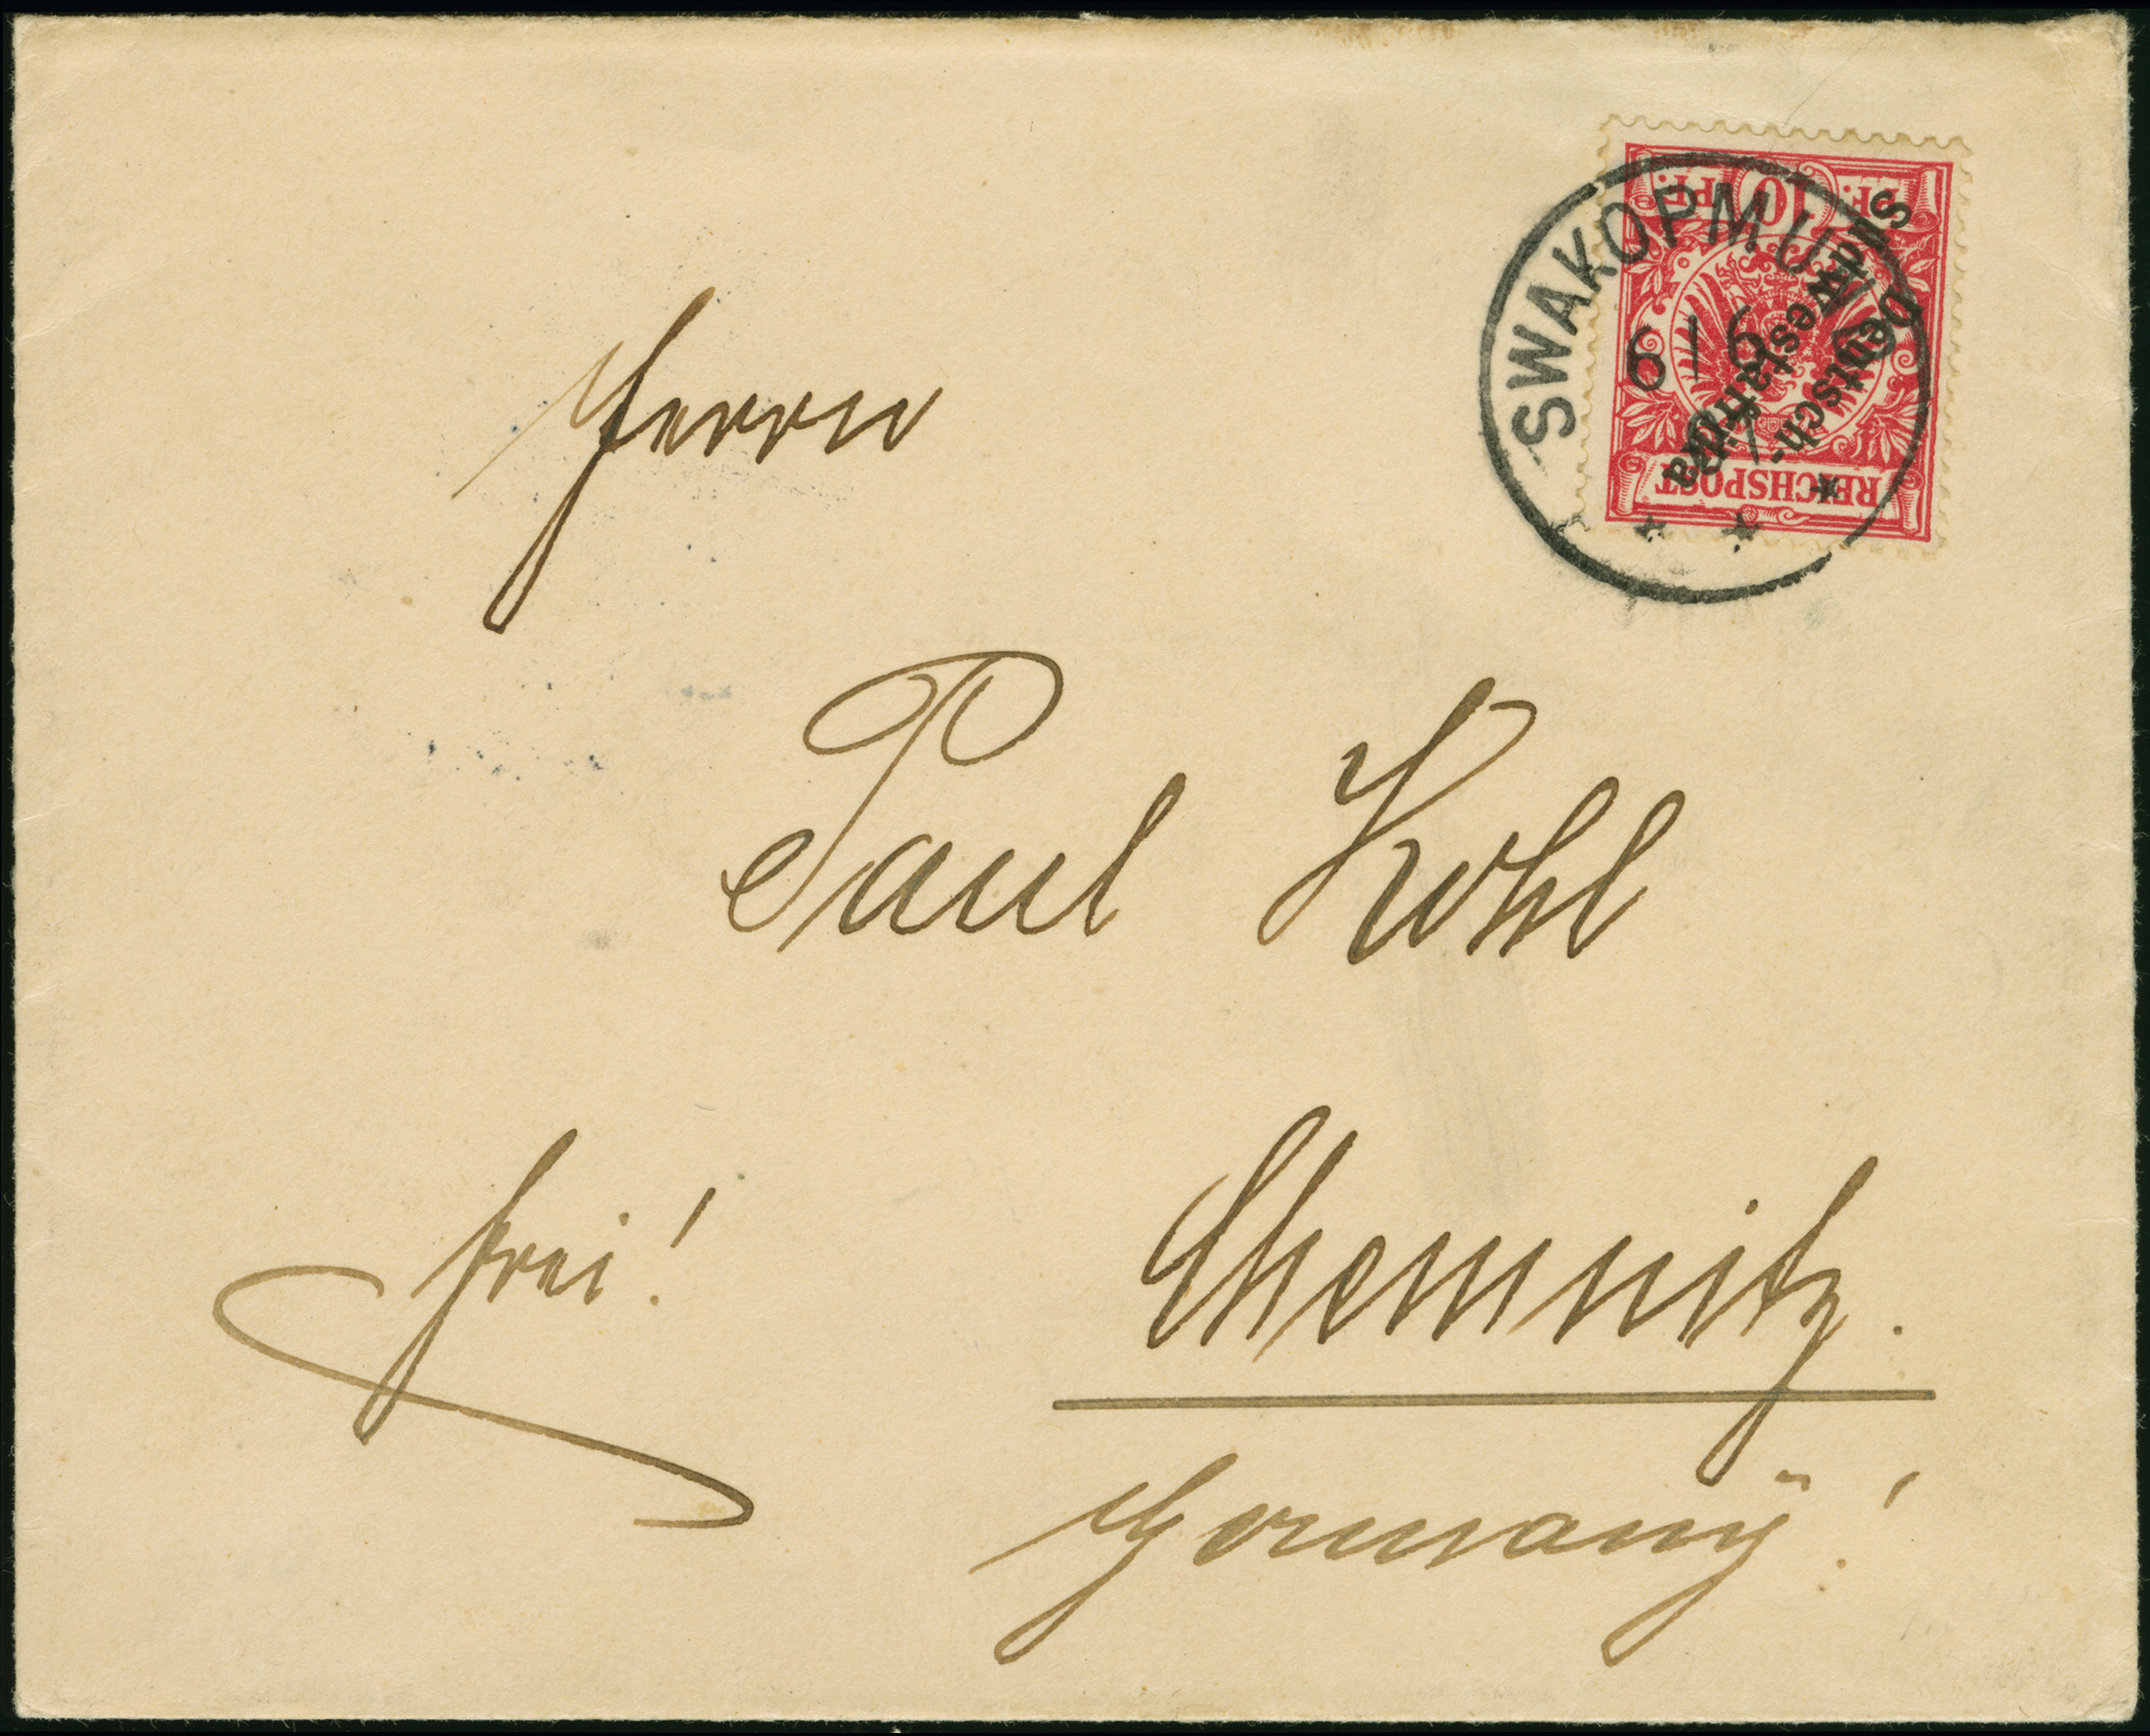 PF. 10 PF.
Deutsch-
Südwestafrika
REICHSPOST
SWAKOPMUND
6/6
* * *
Herrn
Paul Kohl
Chemnitz.
frei!
Germany!